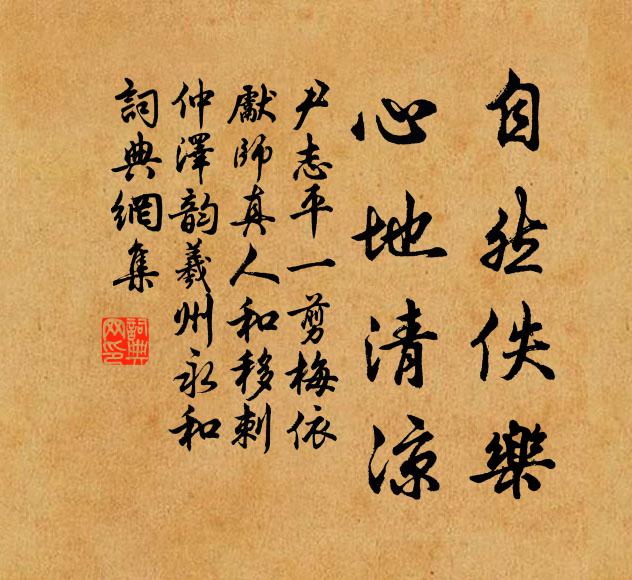 自然佚樂
心地清涼
尹志平一剪梅依
獻師真人和移刺
仲澤韵羲州永和
詞典網集
詞典網印